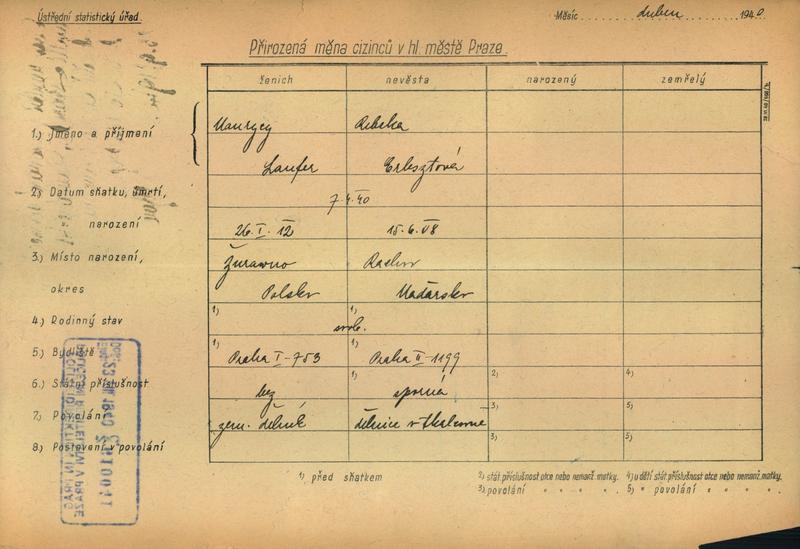 Ústřední statistický úřad
Měsíc duben 1940
Přirozená měna cizinců v hl. městě Praze
ženich nevěsta narozený zemřelý
1.) Jméno a příjmení
Maurycy Rebeka
Laufer Erbsztová
2.) Datum sňatku, úmrtí,
7.4.40
narození
26.I.12 15.6.08
3.) Místo narození,
Żurawno
okres
Polsko Maďarsko
4.) Rodinný stav 1) 1)
svob.
5.) Bydliště 1) Praha I-753 1) Praha II-1199
6.) Státní příslušnost bez 1) sporná 2) 4)
7.) Povolání zem. dělník dělnice v tkalcovně 3) 5)
8.) Postavení v povolání 3) 5)
1) před sňatkem
2) stát. příslušnost otce nebo nemanž. matky.
3) povolání " " " "
4) u dětí stát. příslušnost otce nebo nemanž. matky.
5) " povolání " " " "